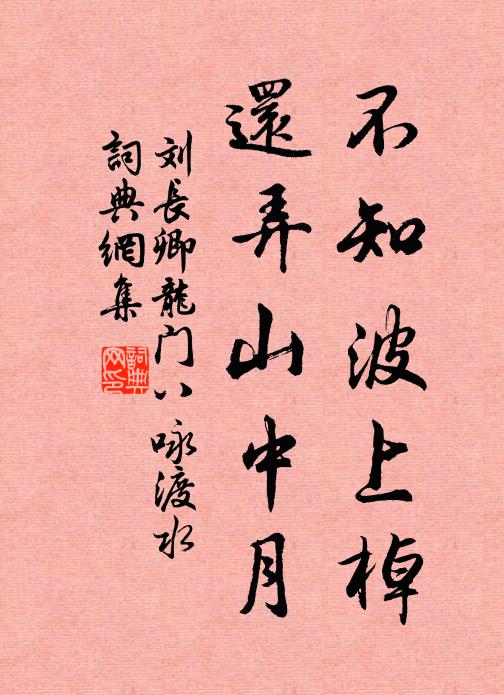 不知波上棹
還弄山中月
刘長卿龍门八咏渡水
詞典網集
詞典网印